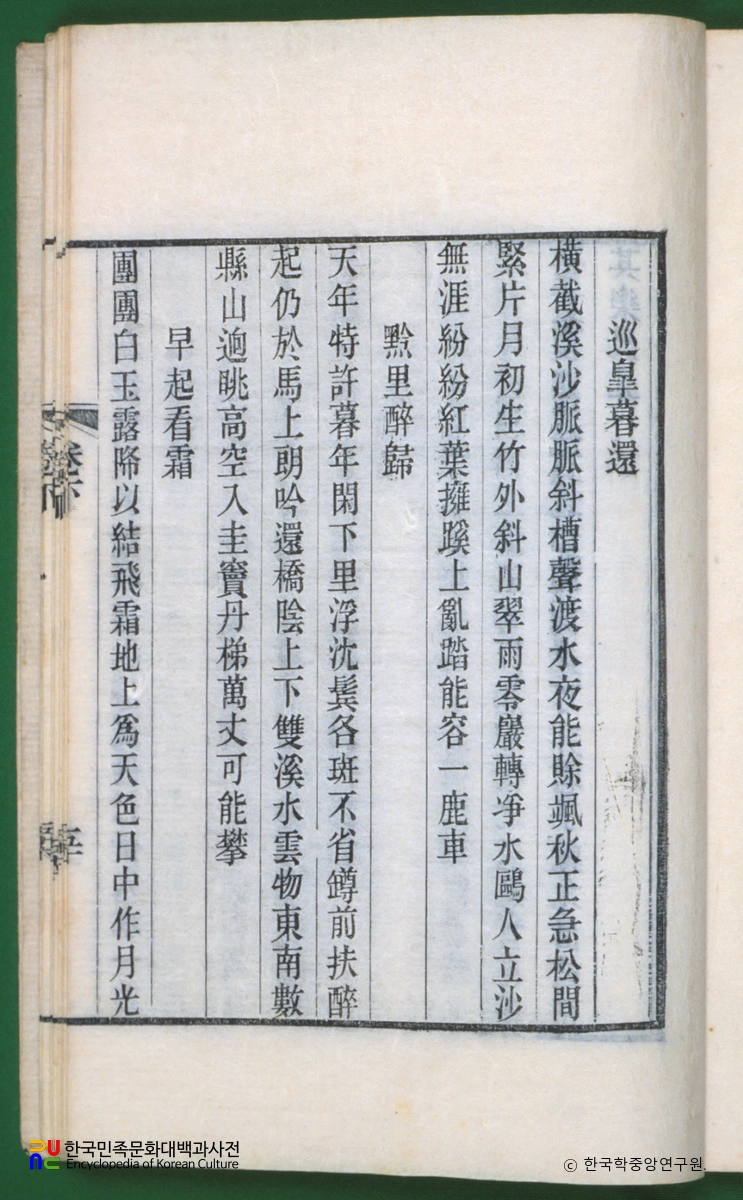 巡皐暮還
橫截溪沙脈脈斜槽聲渡水夜能賒颯秋正急松間
緊片月初生竹外斜山翠雨零巖轉淨水鷗人立沙
無涯紛紛紅葉擁蹊上亂踏能容一鹿車
黔里醉歸
天年特許暮年閑下里浮沈鬂各班不省罇前扶醉
起仍於馬上朗吟還橋陰上下雙溪水雲物東南數
縣山逈眺高空入圭竇丹梯萬丈可能攀
早起看霜
團團白玉露降以結飛霜地上爲天色日中作月光
卷下
한국민족문화대백과사전
Encyclopedia of Korean Culture
© 한국학중앙연구원.